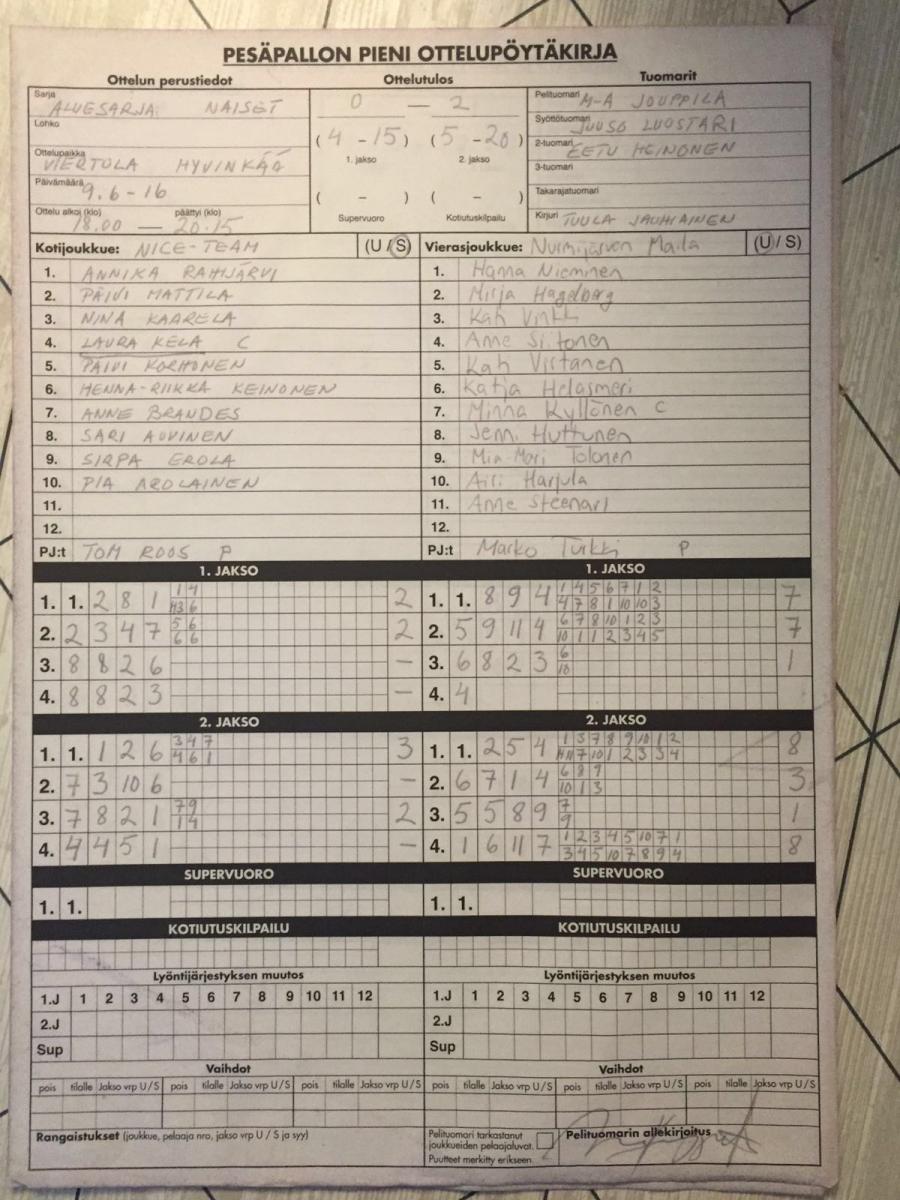 PESÄPALLON PIENI OTTELUPÖYTÄKIRJA
Ottelun perustiedot
Ottelutulos
Tuomarit
Sarja ALUESARJA NAISET
Lohko
Ottelupaikka VIERTOLA HYVINKÄÄ
Päivämäärä 9.6-16
Ottelu alkoi (klo) 18.00 — päättyi (klo) 20.15
0 — 2
(4 - 15) (5 - 20)
1. jakso 2. jakso
( – ) ( – )
Supervuoro Kotiutuskilpailu
Pelituomari M-A JOUPPILA
Syöttötuomari JUUSO LUOSTARI
2-tuomari EETU HEINONEN
3-tuomari
Takarajatuomari
Kirjuri TUULA JAUHIAINEN
Kotijoukkue: NICE-TEAM (U / S)
1. ANNIKA RAHIJÄRVI
2. PÄIVI MATTILA
3. NINA KAARELA
4. LAURA KELA C
5. PÄIVI KORHONEN
6. HENNA-RIIKKA KEINONEN
7. ANNE BRANDES
8. SARI AUVINEN
9. SIRPA EROLA
10. PIA AROLAINEN
11.
12.
PJ:t TOM ROOS P
Vierasjoukkue: Nurmijärven Maila (U / S)
1. Hanna Nieminen
2. Mirja Hagelberg
3. Kati
4. Anne Siitonen
5. Kati Virtanen
6. Katja Helasmeri
7. Minna Kyllönen C
8. Jenni Huttunen
9. Mia-Mari Tolonen
10. Aili Harjula
11. Anne Steenari
12.
PJ:t Marko Turkki P
1. JAKSO
1. 1. 2 8 1 1 4 2
6
2. 2 3 4 7 5 6 2
6 6
3. 8 8 2 6 –
4. 8 8 2 3 –
1. JAKSO
1. 1. 8 9 4 1 4 5 6 7 1 2 7
4 7 8 1 10 10 3
2. 5 9 11 4 6 7 8 10 1 2 3 7
10 1 1 2 3 4 5
3. 6 8 2 3 6 1
10
4. 4
2. JAKSO
1. 1. 1 2 6 3 4 7 3
4 6 1
2. 7 3 10 6 –
3. 7 8 2 1 7 9 2
1 4
4. 4 4 5 1 –
2. JAKSO
1. 1. 2 5 4 1 3 7 8 9 10 1 2 8
7 10 1 2 3 3 4
2. 6 7 1 4 6 8 9 3
10 1 3
3. 5 5 8 9 7 1
9
4. 1 6 11 7 1 2 3 4 5 10 7 1 8
3 4 5 10 7 8 9 4
SUPERVUORO
1. 1.
SUPERVUORO
1. 1.
KOTIUTUSKILPAILU
KOTIUTUSKILPAILU
Lyöntijärjestyksen muutos
1.J 1 2 3 4 5 6 7 8 9 10 11 12
2.J
Sup
Lyöntijärjestyksen muutos
1.J 1 2 3 4 5 6 7 8 9 10 11 12
2.J
Sup
Vaihdot
pois tilalle Jakso vrp U / S pois tilalle Jakso vrp U / S pois tilalle Jakso vrp U / S
Vaihdot
pois tilalle Jakso vrp U / S pois tilalle Jakso vrp U / S pois tilalle Jakso vrp U / S
Rangaistukset (joukkue, pelaaja nro, jakso vrp U / S ja syy)
Pelituomari tarkastanut
joukkueiden pelaajaluvat.
Puutteet merkitty erikseen
Pelituomarin allekirjoitus